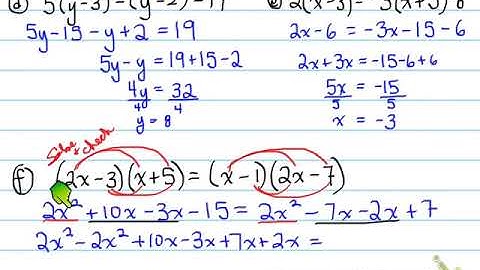 d) 5(y-3)-(y-2)=19
5y-15-y+2=19
5y-y=19+15-2
4y=32
4 4
y=8
2x-6=-3x-15-6
2x+3x=-15-6+6
5x=-15
5 5
x=-3
Solve & check
f) (2x-3)(x+5)=(x-1)(2x-7)
2x²+10x-3x-15=2x²-7x-2x+7
2x²-2x²+10x-3x+7x+2x=